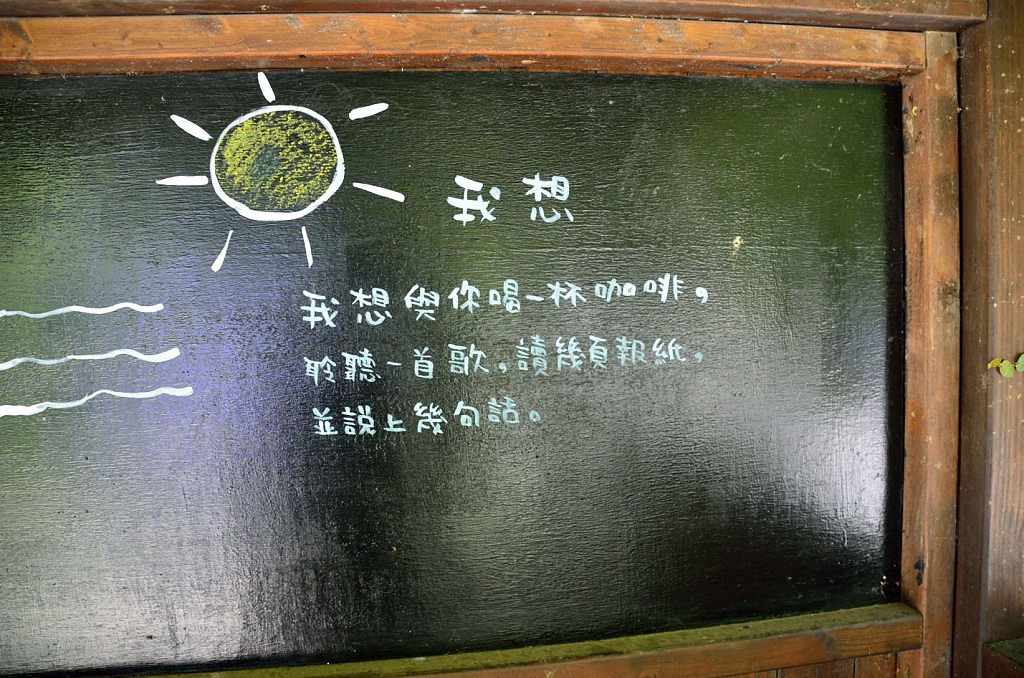 我想
我想與你喝一杯咖啡,
聆聽一首歌,讀幾頁報紙,
並說上幾句話。